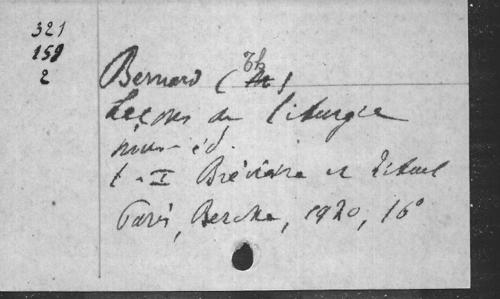 321
159
2
Bernard (Th)
Leçons de liturgie
nouv. éd.
t. I Bréviaire et Rituel
Paris, Berche, 1920, 16°